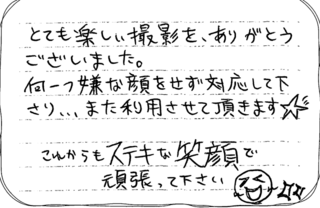 とても楽しい撮影を、ありがとう
ございました。
何一つ嫌な顔をせず対応して下
さり、、、また利用させて頂きます☆
これからもステキな笑顔で
頑張って下さい